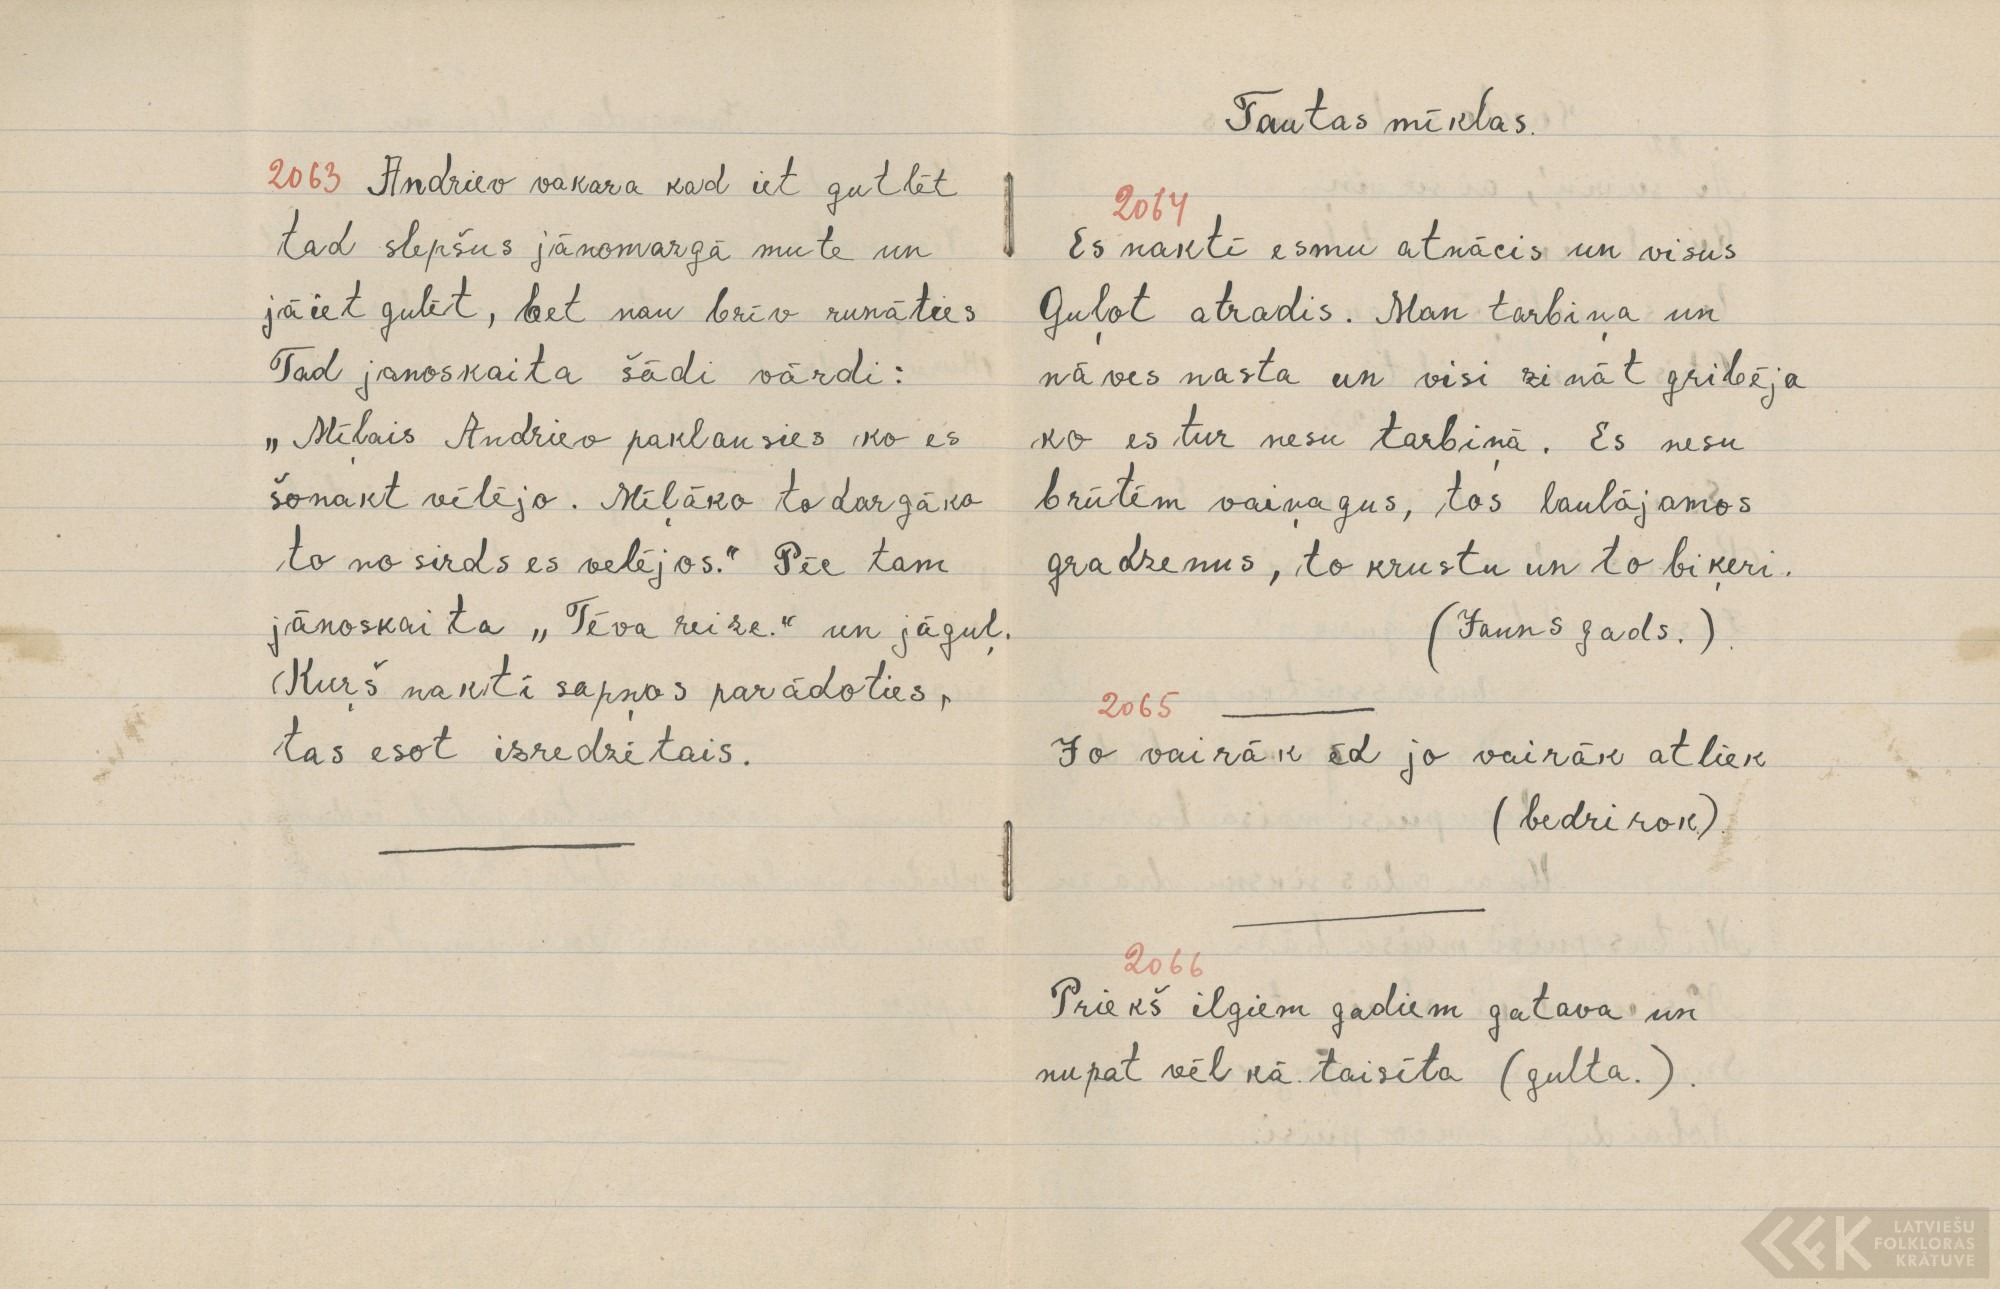 2063 Andriev vakara kad iet gutlēt
tad slepšus jānomargā mute un
jāiet gulēt, bet nau brīv runāties
Tad janoskaita šādi vārdi:
„Mīļais Andriev paklausies ko es
šonakt vēlējo. Mīļāko to dargāko
to no sirds es velējos." Pēc tam
jānoskaita „Tēva reize." un jāguļ.
Kuŗš naktī sapņos parādoties,
tas esot izredzētais.
Tautas mīklas.
2064
Es naktī esmu atnācis un visus
Guļot atradis. Man tarbiņa un
nāves nasta un visi zināt gribēja
ko es tur nesu tarbiņā. Es nesu
brūtēm vaiņagus, tos laulājamos
gradzenus, to krustu un to biķeri.
(Jauns gads.).
2065
Jo vairāk ēd jo vairāk atliek
(bedri rok).
2066
Priekš ilgiem gadiem gatava un
nupat vēl kā taisīta (gulta.).
LATVIEŠU
FOLKLORAS
KRĀTUVE